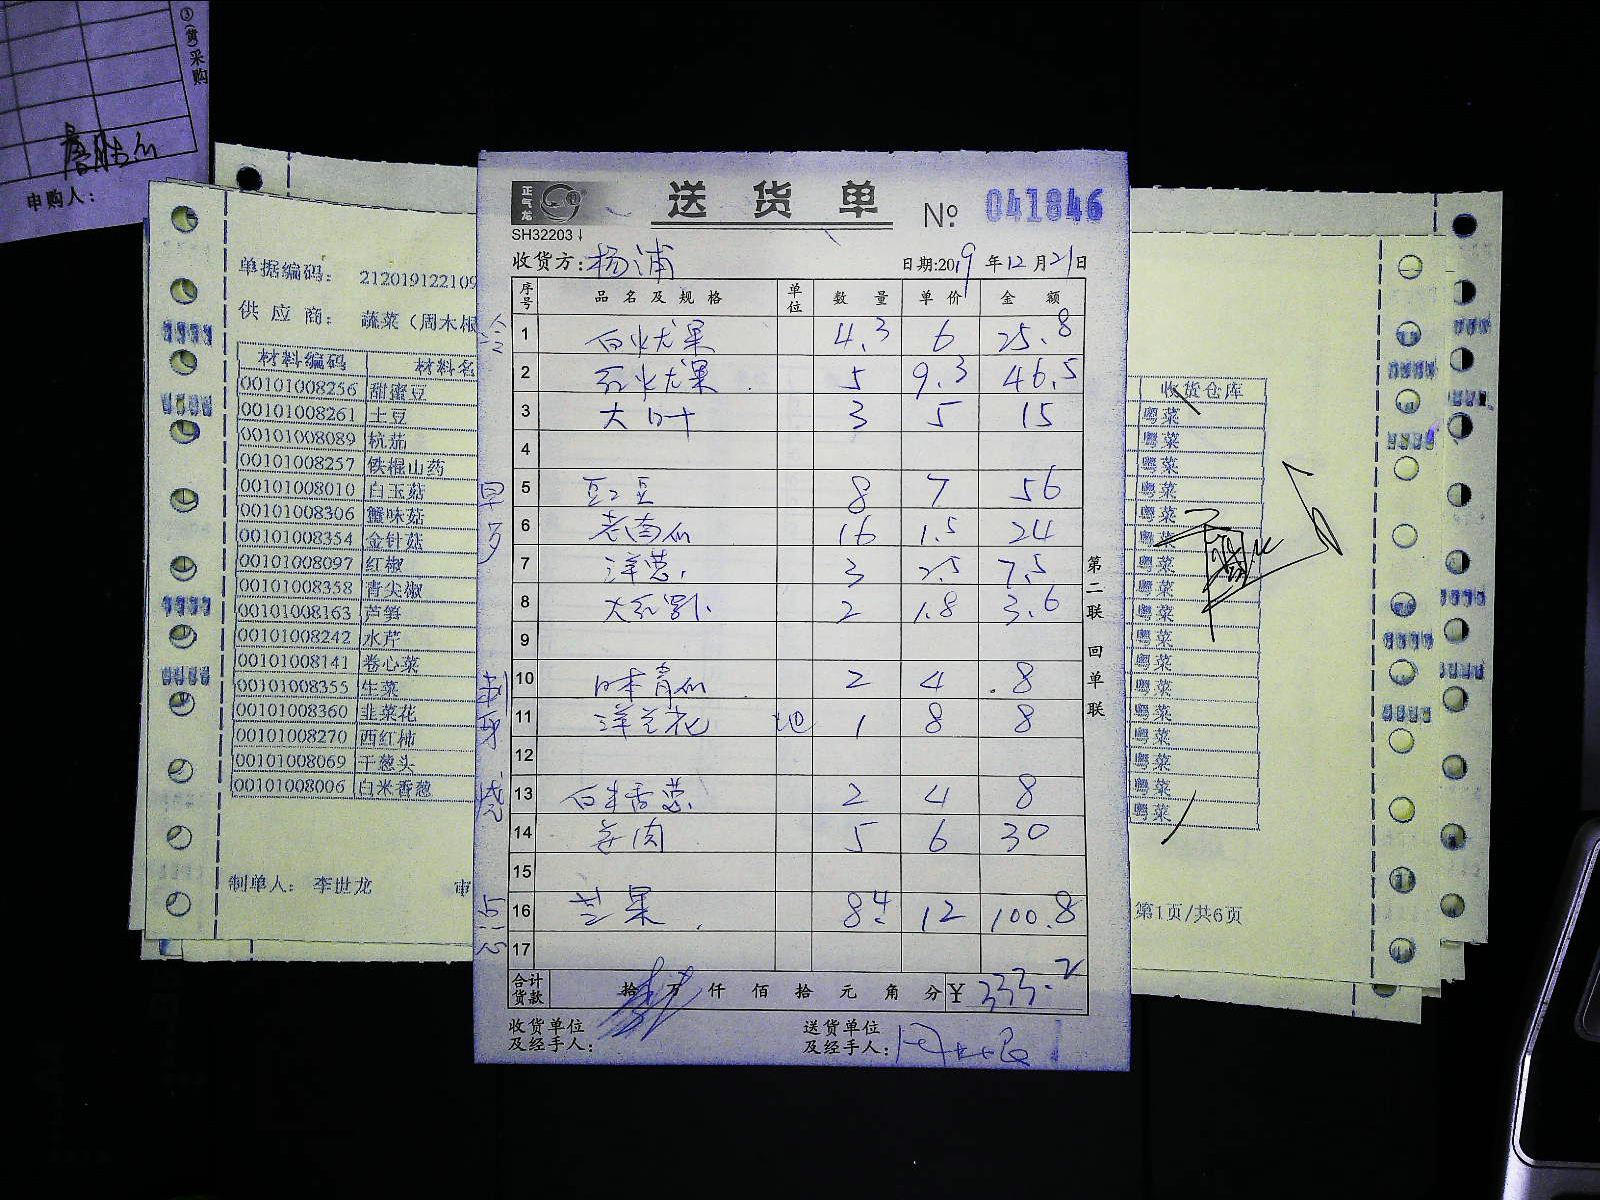 ③(黄)采购
申购人：
单据编码： 212019122109
供 应 商： 蔬菜（周木根
材料编码 材料名
00101008256 甜蜜豆
00101008261 土豆
00101008089 杭茄
00101008257 铁棍山药
00101008010 白玉菇
00101008306 蟹味菇
00101008354 金针菇
00101008097 红椒
00101008358 青尖椒
00101008163 芦笋
00101008242 水芹
00101008141 卷心菜
00101008355 生菜
00101008360 韭菜花
00101008270 西红柿
00101008069 干葱头
00101008006 白米香葱
制单人： 李世龙 审
正气龙
送货单 № 041846
SH32203
收货方：杨浦 日期:2019年12月21日
序号 品名及规格 单位 数量 单价 金额
冷
1 白火龙果 4.3 6 25.8
2 红火龙果 5 9.3 46.5
3 大叶 3 5 15
4
早
5 豇豆 8 7 56
6 老南瓜 16 1.5 24
7 洋葱 3 2.5 7.5
8 2 1.8 3.6
9
刺身
10 日本青瓜 2 4 8
11 洋兰花 1 8 8
12
烧
13 白米香葱 2 4 8
14 姜肉 5 6 30
15
点心
16 芒果 8.4 12 100.8
17
合计货款 拾 万 仟 佰 拾 元 角 分 ¥ 333.2
收货单位及经手人：
送货单位及经手人：周木根
第二联 回单联
收货仓库
粤菜
粤菜
粤菜
粤菜
粤菜
粤菜
粤菜
粤菜
粤菜
粤菜
粤菜
粤菜
粤菜
粤菜
粤菜
粤菜
粤菜
第1页/共6页